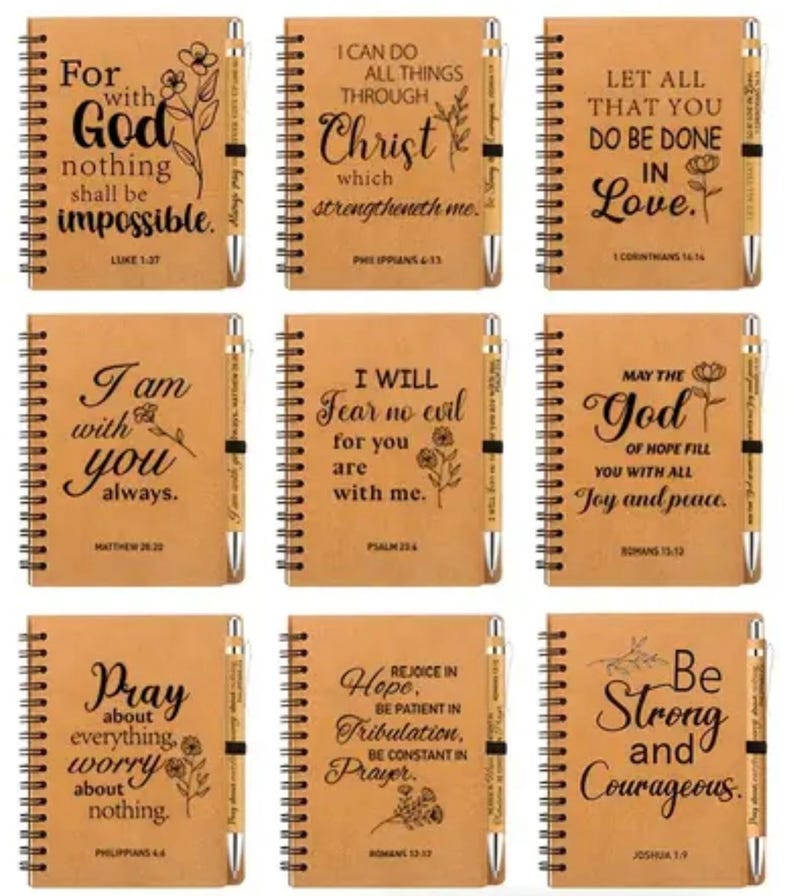 For
with
God
nothing
shall be
impossible.
LUKE 1:37
I CAN DO
ALL THINGS
THROUGH
Christ
which
strengtheneth me.
PHILIPPIANS 4:13
LET ALL
THAT YOU
DO BE DONE
IN
Love.
1 CORINTHIANS 16:14
I am
with
you
always.
MATTHEW 28:20
I WILL
Fear no evil
for you
are
with me.
PSALM 23:4
MAY THE
God
OF HOPE FILL
YOU WITH ALL
Joy and peace.
ROMANS 15:13
Pray
about
everything,
worry
about
nothing.
PHILIPPIANS 4:6
REJOICE IN
Hope,
BE PATIENT IN
Tribulation,
BE CONSTANT IN
Prayer.
ROMANS 12:12
Be
Strong
and
Courageous.
JOSHUA 1:9